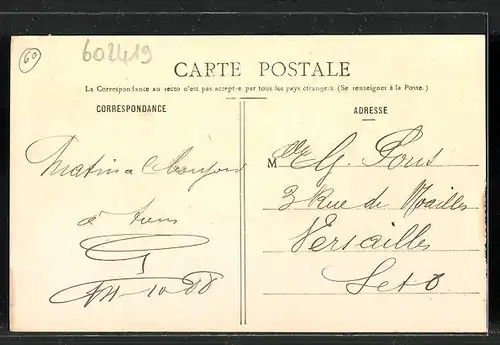 60
602419
CARTE POSTALE
La Correspondance au recto n'est pas acceptée par tous les pays étrangers. (Se renseigner à la Poste.)
CORRESPONDANCE
Matinal bonjour
à tous
ADRESSE
Mlle Pons
3 Rue de Noailles
Versailles
Set O